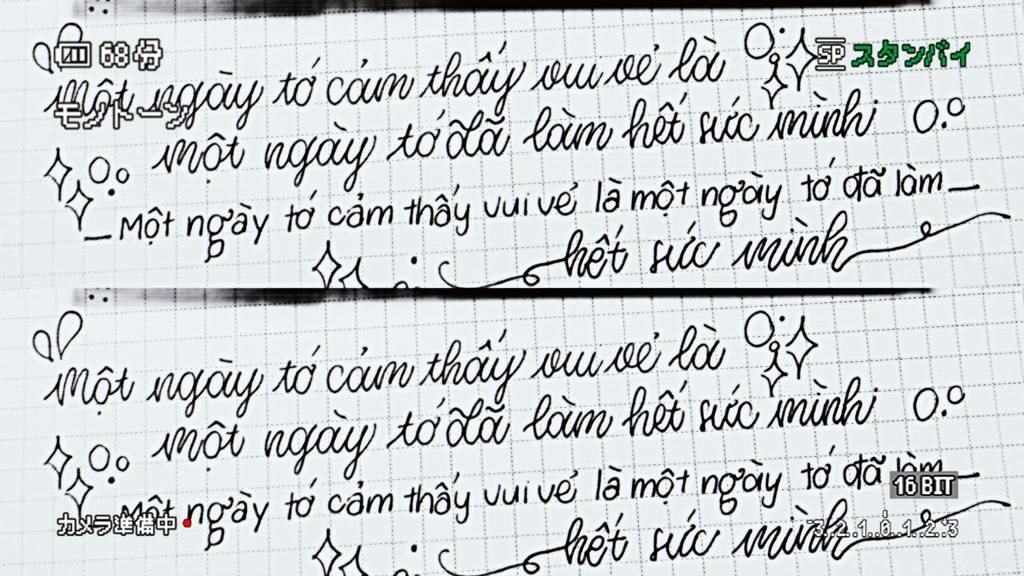 68分
SP スタンバイ
Một ngày tớ cảm thấy vui vẻ là
モノトーン
một ngày tớ đã làm hết sức mình
Một ngày tớ cảm thấy vui vẻ là một ngày tớ đã làm
hết sức mình
Một ngày tớ cảm thấy vui vẻ là
một ngày tớ đã làm hết sức mình
Một ngày tớ cảm thấy vui vẻ là một ngày tớ đã làm
16 BIT
カメラ準備中
3..2..1..0..1..2..3
hết sức mình